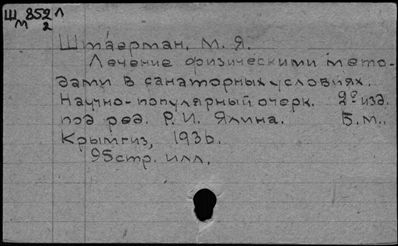 Ш 852 Л
М 2
Штаерман, М. Я.
Лечение физическими мето-
дами в санаторных условиях.
Научно-популярный очерк. 2е изд.
под ред. Р. И. Ялина. Б.м.
Крымгиз, 1936.
95стр. илл.